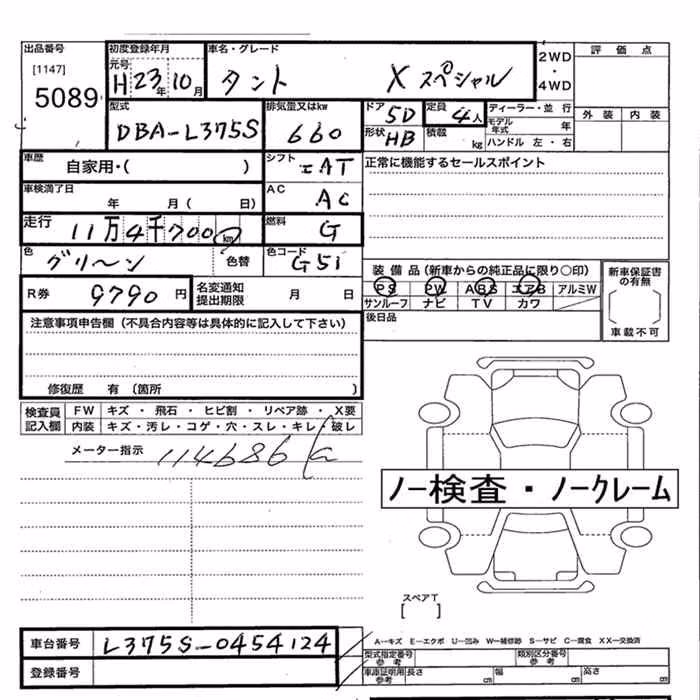 出品番号 初度登録年月 車名・グレード 2WD ・ 4WD 評価点
[1147] 元号
5089 H23年10月 タント Xスペシャル
外装 内装
型式 排気量又はkw ドア 5D 定員 4人 ディーラー・並行
DBA-L375S 660 形状 HB 積載 kg モデル年式 年
ハンドル 左・右
車歴 自家用・( ) シフト AT 正常に機能するセールスポイント
車検満了日 年 月( 日) AC AC
走行 11万4千700km 燃料 G
色 グリーン 色替 色コード G51
装備品(新車からの純正品に限り○印) 新車保証書の有無
R券 9790円 名変通知提出期限 月 日 PS PW ABS エアB アルミW
サンルーフ ナビ TV カワ
注意事項申告欄(不具合内容等は具体的に記入して下さい) 後日品 車載不可
修復歴 有(箇所 )
検査員記入欄 FW キズ・飛石・ヒビ割・リペア跡・X要
内装 キズ・汚レ・コゲ・穴・スレ・キレ・破レ
メーター指示 114686
ノー検査・ノークレーム
スペアT
[ ]
車台番号 L375S-0454124 A-キズ E-エクボ U-凹み W-補修跡 S-サビ C-腐食 XX-交換済
型式指定番号 参考 類別区分番号 参考
登録番号 車庫証明用 参考 長さ cm 幅 cm 高さ cm